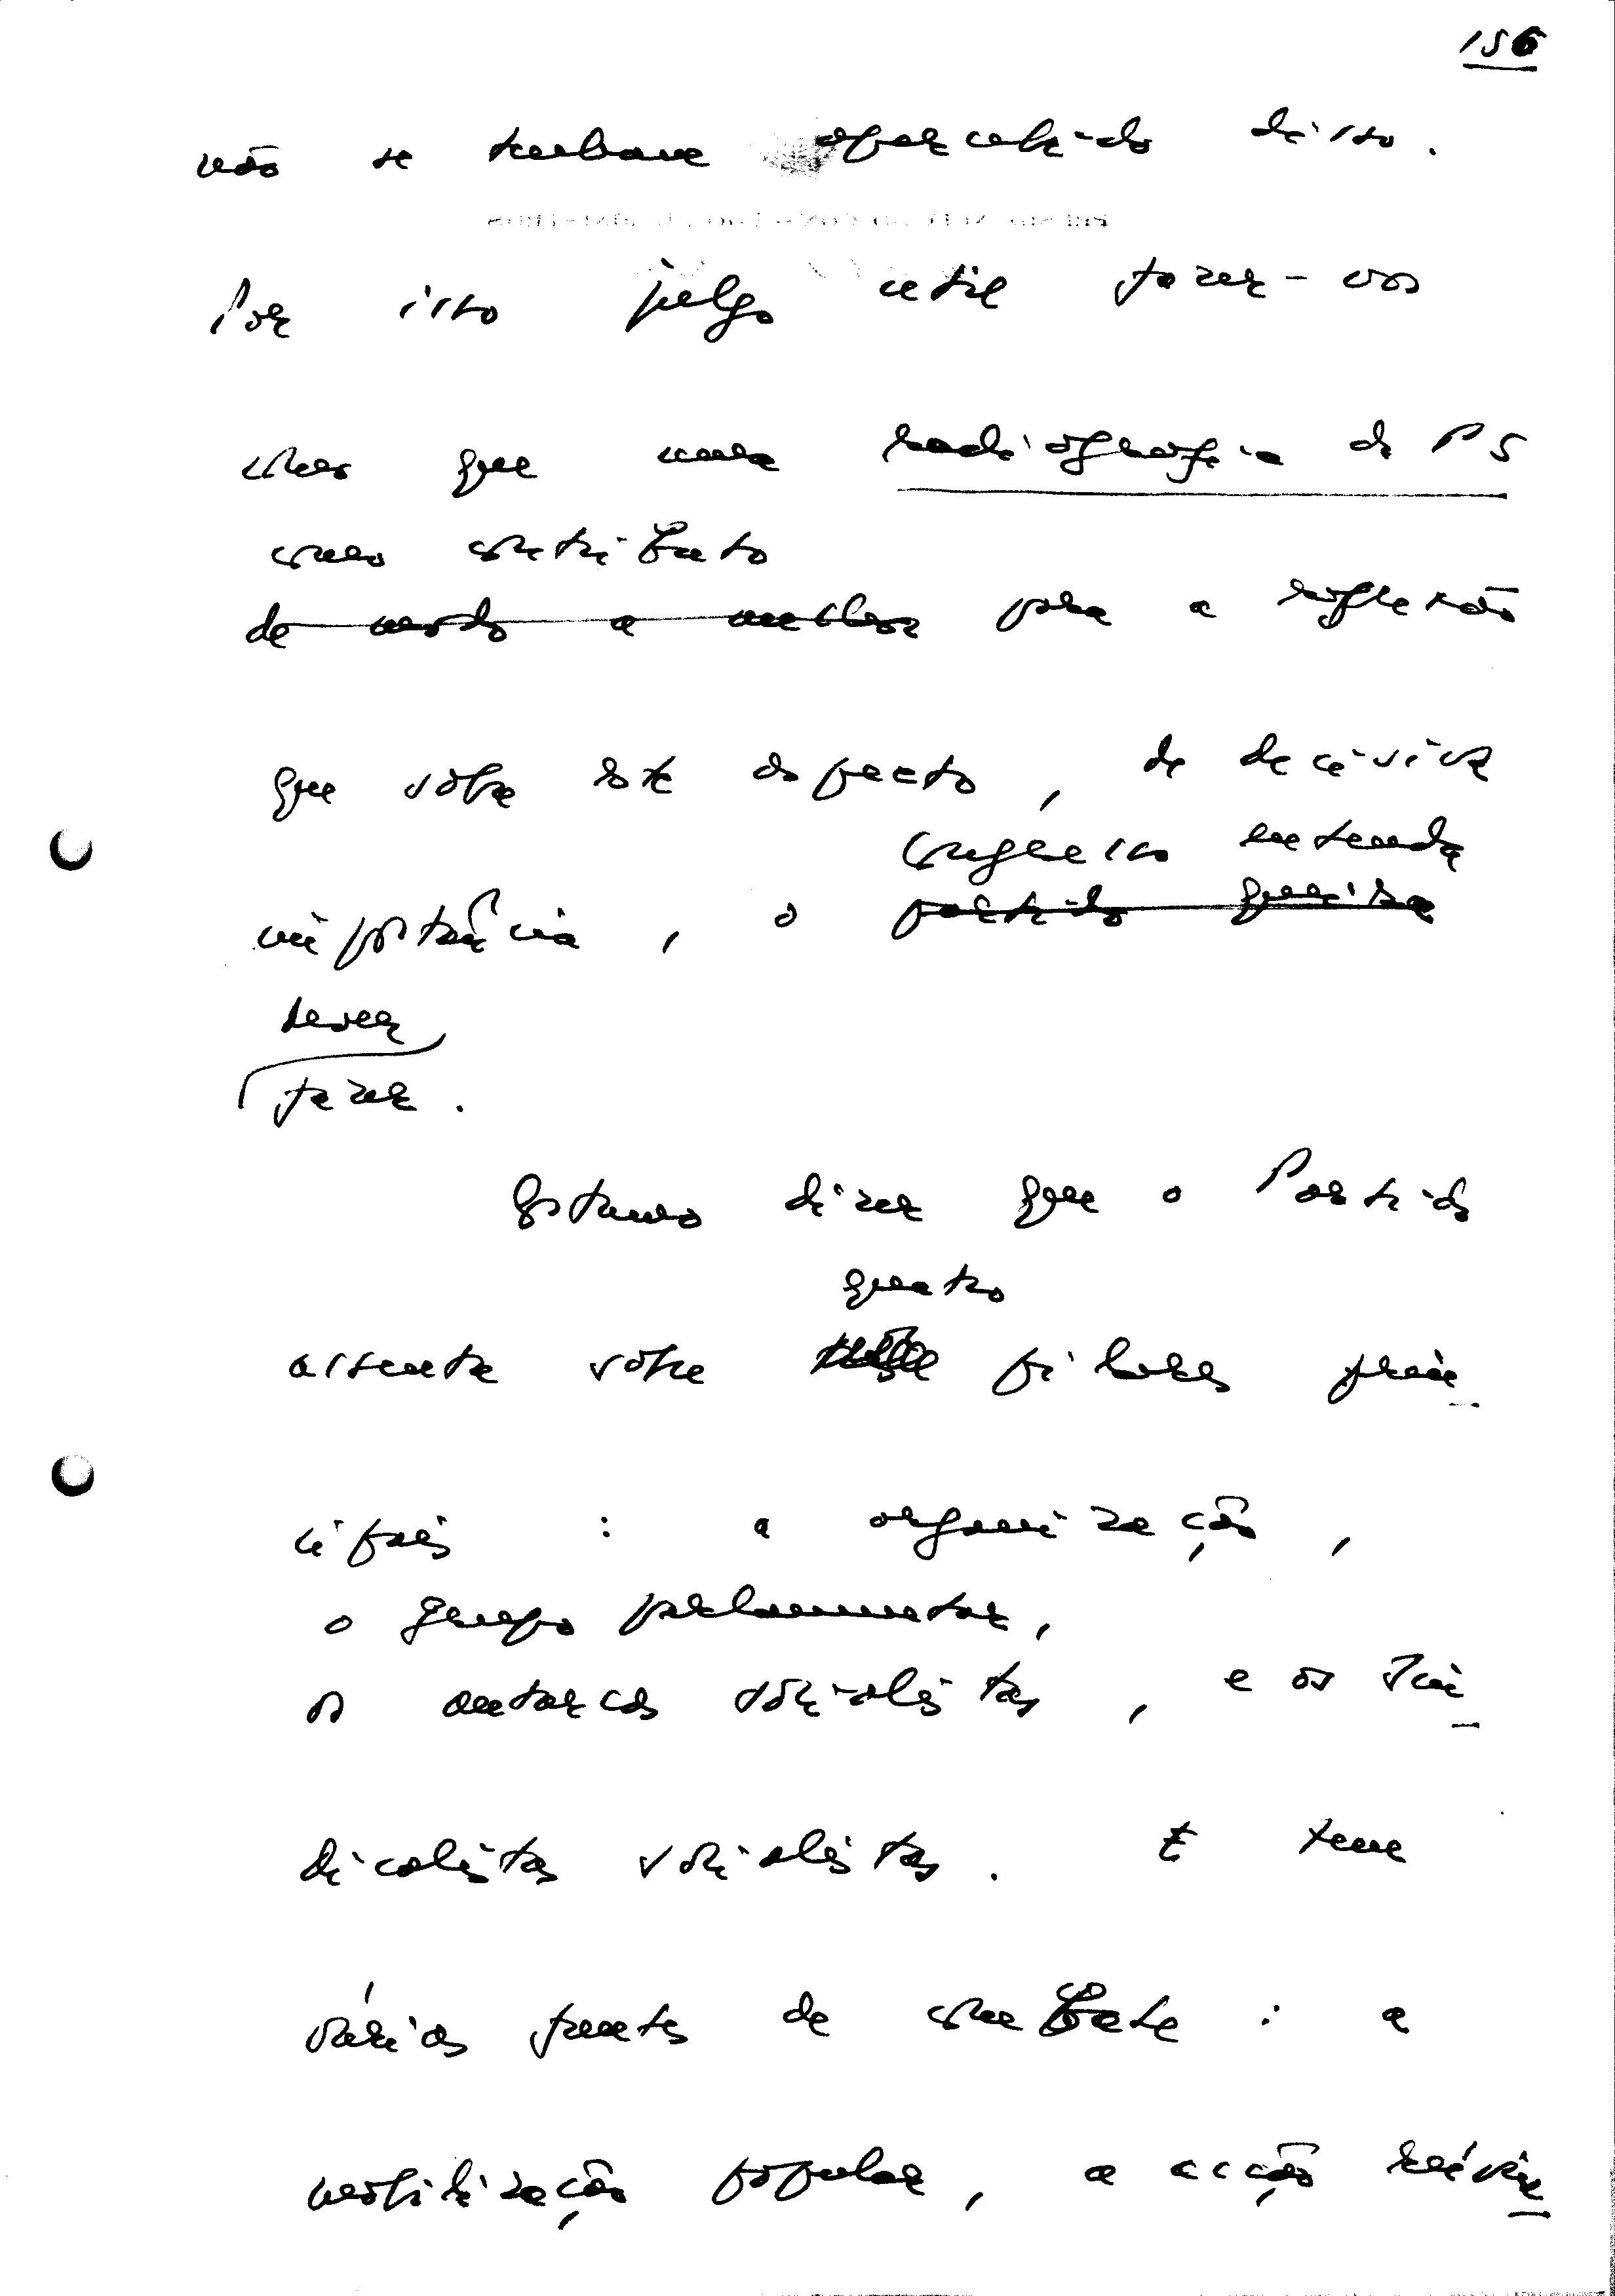 156
não se tenham apercebido disso.
Por isso julgo útil fazer-vos
mais que uma radiografia do PS
como contributo
de modo a melhor para a reflexão
que sobre este aspecto, de decisiva
congresso entenda
importância, o partido precisa
dever
fazer.
Costumo dizer que o Partido
quatro
assenta sobre pilares prin-
cipais : a organização,
o grupo parlamentar,
os autarcas socialistas, e os sin-
dicalistas socialistas. E tem
várias frentes de combate : a
mobilização popular, a acção